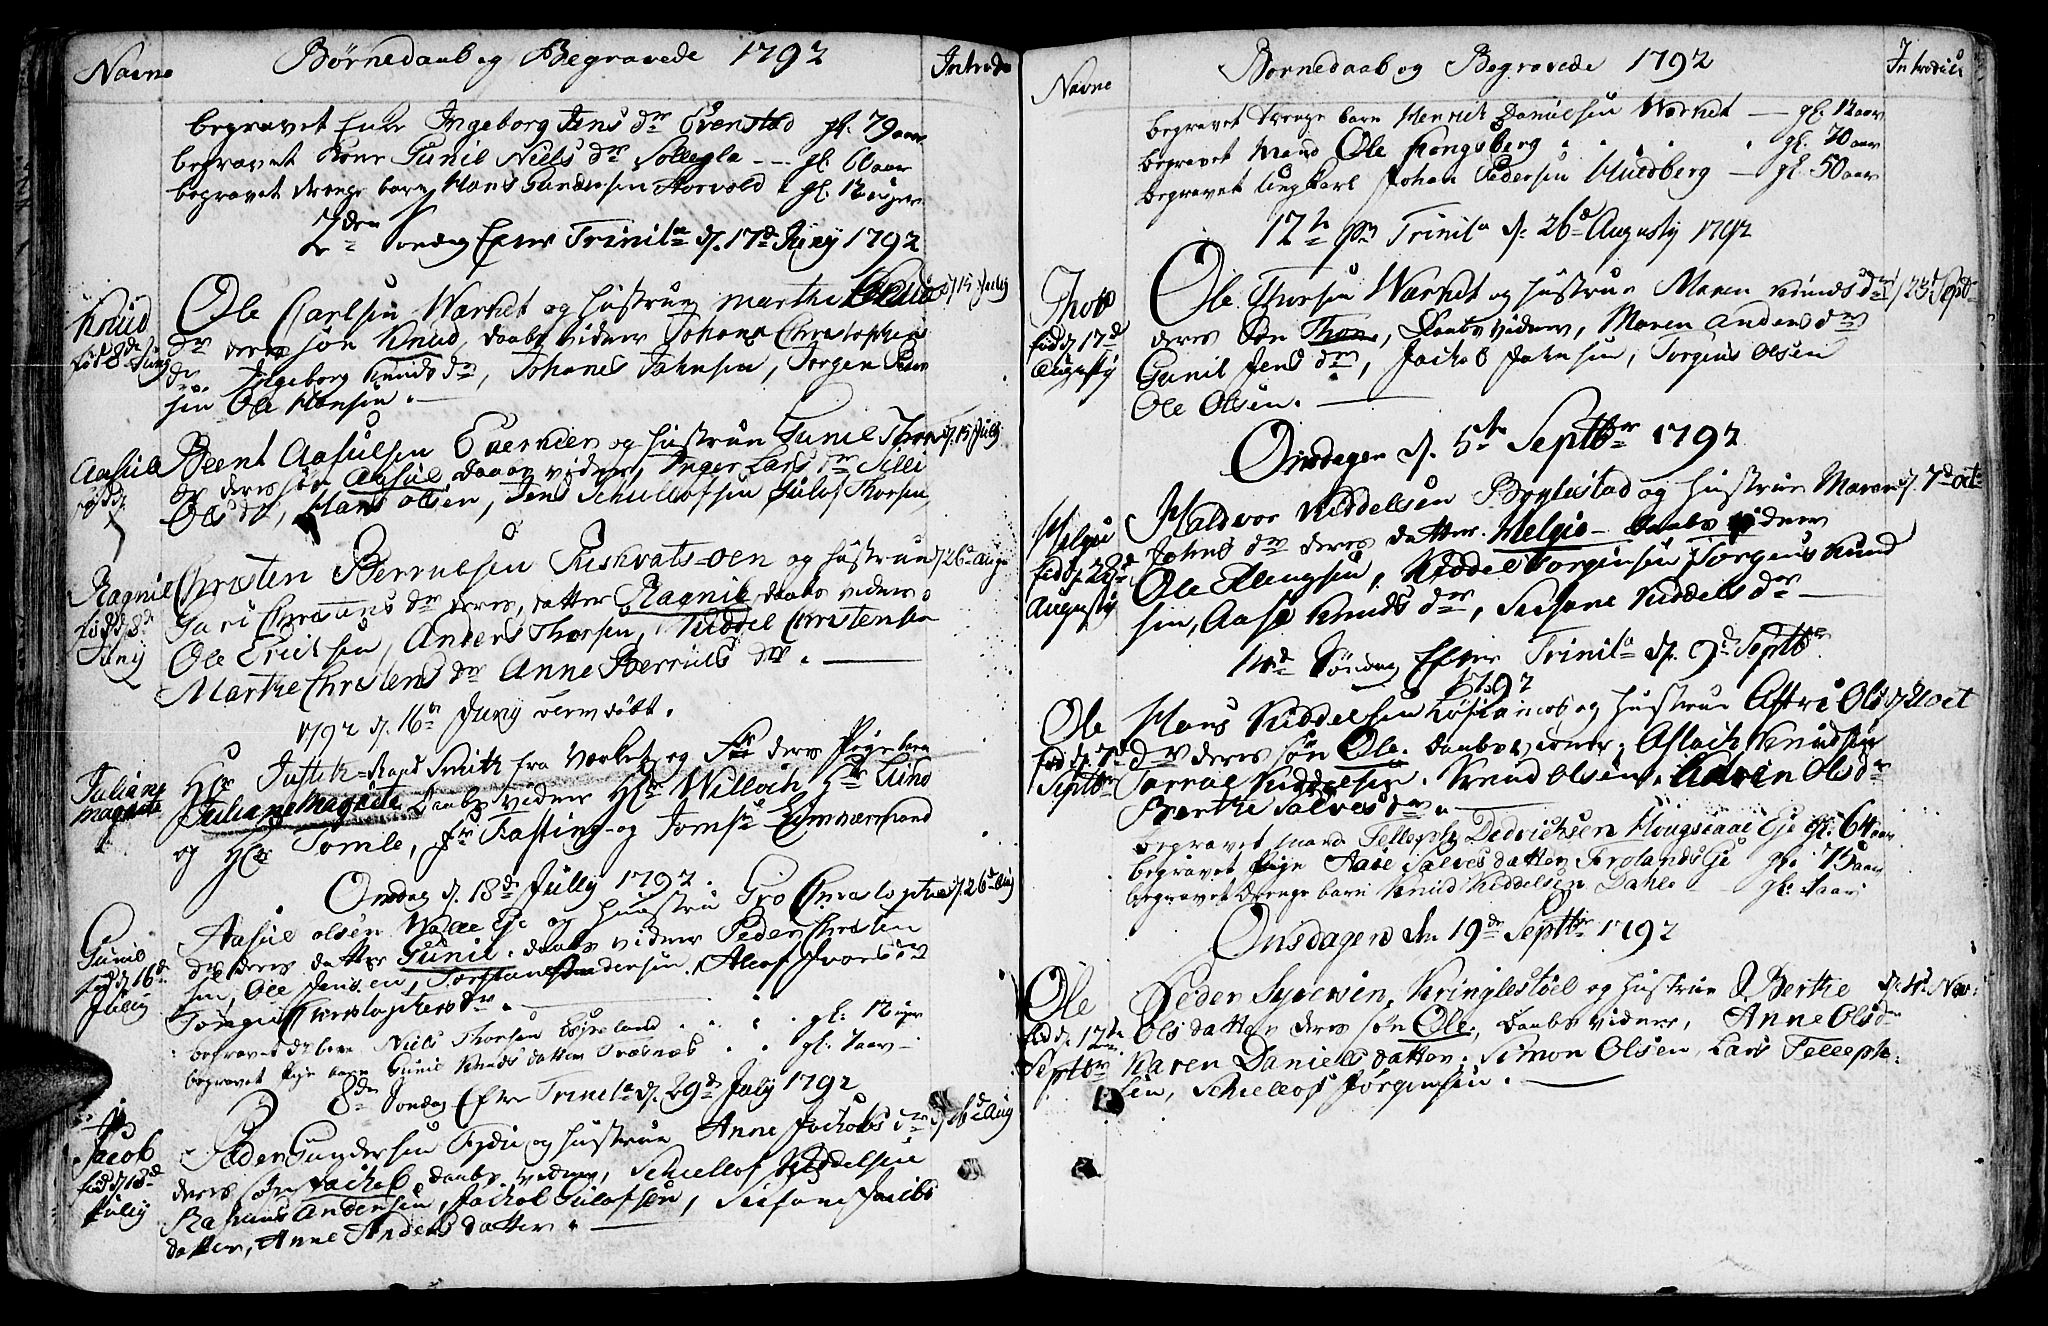 Navne Børnedaab og Begravede 1792 Introds
begravet Enke Ingeborg Jens dr Evenstad gl. 79 aar
begravet Kone Gunil Niels dr Sollegla --- gl. 60 aar
begravet drenge barn Hans Gundersen Storvold gl. 12 uger
2den Søndag Efter Trinit. d. 17d Juny 1792
Knud
fød 8de Juny
Ole Carlsen Warket og Hustrue Marthe d. 15 July
dr deres søn Knud, daabs vidner Johane Christophers
dr. Ingeborg Knuds dr, Johanes Jahnsen, Jørgen Peder
sen Ole Hansen.
Aasul
Bent Aasulsen og Hustrue Gunil Thor d. 15 July
dr deres søn Aasul, daabs vidner, Inger Lars dr
Ols dr, Hans Olsen, Jens Schullofsen Gulof Thorsen
Ragnil
fød d. 8d
Juny
Christen Berrulsen Riskvats-oen og Hustrue d. 26d Aug
Gari Christens dr deres datter Ragnil daabs vidner
Ole Erichsen, Anders Thorsen, Kiddel Christensen
Marthe Christens dr Anne Berruls dr.
1792 d. 16n Juny døbt.
Juliane
Magrete
Hr Justitz-Raad Smith fra Værket og Fr deres Pige barn
Juliane Magrete Daabs vidner Hr Willoch Hr Lund
og Hr Tomle, fr Rasting og Jomf.
Onsdag d. 18de July 1792.
Gunil
fød d. 16de
July
Aasul Olsen Eje og Hustrue Gro Christophers d. 26d Aug
dr deres datter Gunil. daabs vidner Peder Christen
sen, Ole Jensen, Torstan Andersen, Aleof Ivars dr
Torgiu Christophers dr.
begravet Niels Thorsen Espeland gl. 12 uger
begravet Pige barn Gunil Knuds datter Træsnæs gl. 7 aar
8de Søndag Efter Trinit. d. 29de July 1792
Jacob
fød d. 18de
July
Peder Gundersen og Hustrue Anne Jachobs dr d. Aug
deres søn Jachob, daabs vidner, Schiellof Kiddelsen
Rasmus Andersen, Jachob Gulofsen, Susane Jacobs
datter, Anne Anders datter.
Navne Børnedaab og Begravede 1792 Introduc
begravet drenge barn Henrich Danielsen Warket — gl. 12 aar
begravet Mand Ole Kongsberg gl. 70 aar
begravet ungkarl Johan Pedersen Huldberg — gl. 50 aar
12te Trinit. d. 26d Augusty 1792
Thor
fød d. 17d
Augusty
Ole Thorsen Warket og Hustrue Maren Knuds dr d. 23d Sept
deres Søn Thor, Daabs vidner, Maren Anders dr
Gunil Jens dr, Jachob Jahnsen, Torgius Olsen
Ole Olsen.
Onsdagen d. 5te Septbr 1792
Helgie
fød d. 22d
Augusty
Haldvor Kiddelsen Bøylestad og Hustrue Maren d. 7d oct
Johns dr deres datter Helgie — daabs vidner
Ole Ellingsen, Kiddel Torgiusen Torgius Knud
sen, Aase Knuds dr, Susane Kiddels dr
14d Søndag Efter Trinit. d. 9d Septbr
1792
Ole
fød d. 7d
Septbr
Hans Kiddelsen og Hustrue Astri Ols d. oct
dr deres søn Ole. daabs vidner, Aslach Knudsen
Torral Kiddelsen. Knud Olsen. Karen Ols dr
Berthe Salves dr
begravet mand Telleph Didrichsen Eje gl. 64 aar
begravet Pige Aase Salves datter Frolands Eje gl. 75 aar
begravet Drenge barn Knud Kiddelsen Dahle gl. 1 aar
Onsdagen den 19de Septbr 1792
Ole
fød d. 12te
Septbr
Peder Syversen, Kringlestøel og Hustrue Berthe d. 4d Nov
Ols datter deres søn Ole, daabs vidner, Anne Ols dr
Karen Daniels datter. Simon Olsen, Lars Telleph
sen, Schiellof Jørgensen.